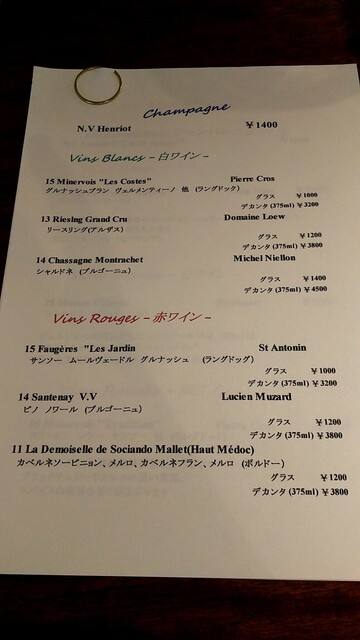 Champagne
N.V Henriot ￥1400
Vins Blancs – 白ワイン –
15 Minervois "Les Costes" Pierre Cros
グルナッシュブラン ヴェルメンティーノ 他 (ラングドック)
グラス ￥1000
デカンタ (375ml) ￥3200
13 Riesing Grand Cru Domaine Loew
リースリング(アルザス)
グラス ￥1200
デカンタ (375ml) ￥3800
14 Chassagne Montrachet Michel Niellon
シャルドネ (ブルゴーニュ)
グラス ￥1400
デカンタ (375ml) ￥4500
Vins Rouges – 赤ワイン –
15 Faugères "Les Jardin St Antonin
サンソー ムールヴェードル グルナッシュ (ラングドッグ)
グラス ￥1000
デカンタ (375ml) ￥3200
14 Santenay V.V Lucien Muzard
ピノ ノワール (ブルゴーニュ)
グラス ￥1200
デカンタ (375ml) ￥3800
11 La Demoiselle de Sociando Mallet(Haut Médoc)
カベルネソービニョン、メルロ、カベルネフラン、メルロ (ボルドー)
グラス ￥1200
デカンタ (375ml) ￥3800